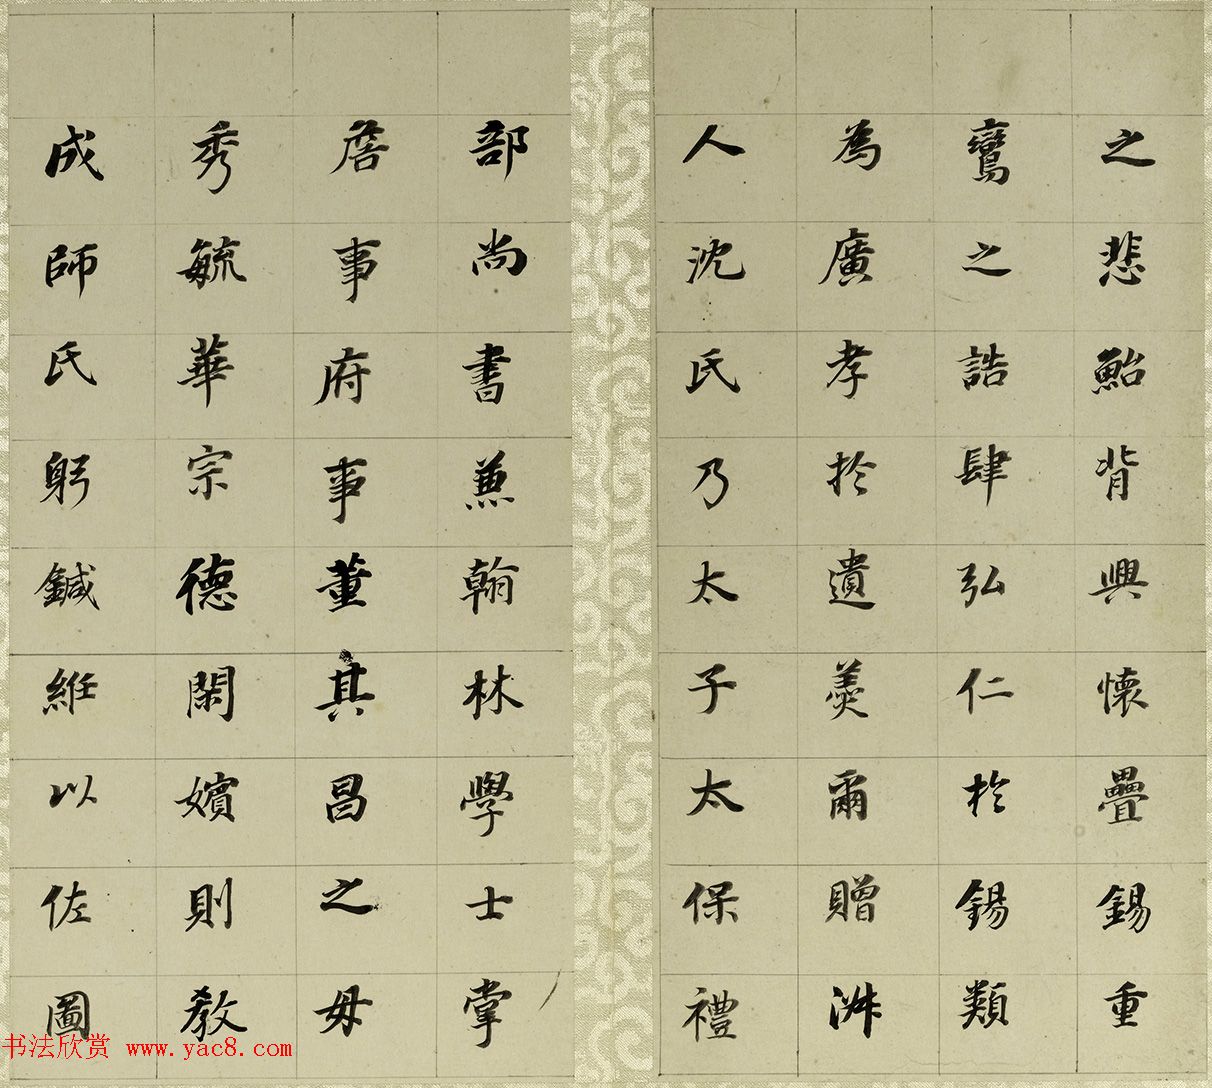 之悲鮐背興懷疊錫重
鸞之誥肆弘仁於錫類
為廣孝於遺羮爾贈淑
人沈氏乃太子太保禮
部尚書兼翰林學士掌
詹事府事董其昌之母
秀毓華宗德閑嬪則教
成師氏躬鍼絍以佐圖
书法欣赏 www.yac8.com